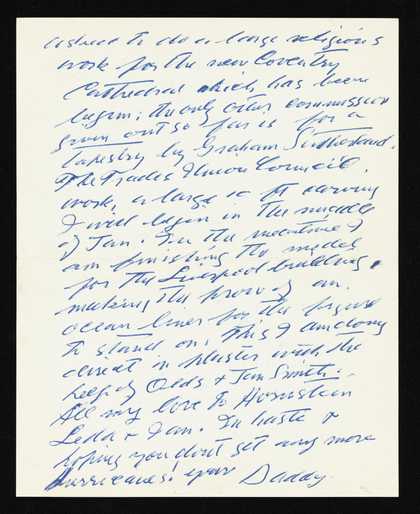 asked to do a large religious
work for the new Coventry
Cathedral which has been
begun; the only other commission
given out so far is for a
tapestry by Graham Sutherland.
The Trades Union Council.
work, a large 10 ft carving
I will begin in the middle
of Jan. In the meantime I
am finishing the model
for the Liverpool building,
making the prow of an
ocean liner for the figure
to stand on. This I am doing
direct in plaster with the
help of Olds & Jan Smith.
All my love to
Leda & Ian. In haste &
hoping you don't get any more
hurricanes! your Daddy.